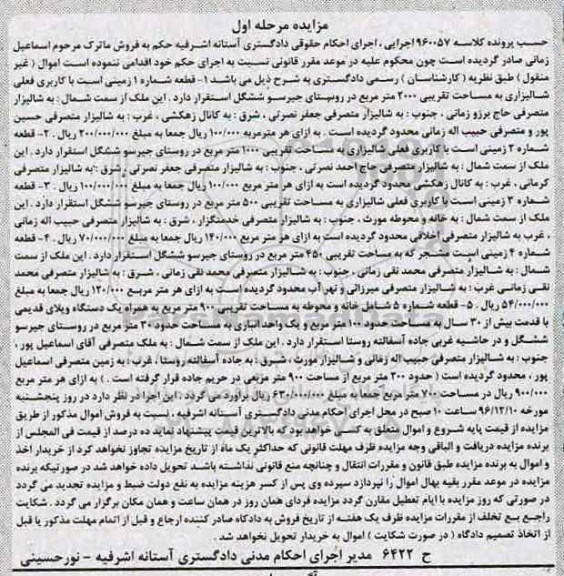 مزایده مرحله اول
حسب پرونده کلاسه ۹۶۰۰۵۷ اجرایی ، اجرای احکام حقوقی دادگستری آستانه اشرفیه حکم به فروش ماترک مرحوم اسماعیل
زمانی صادر گردیده است چون محکوم علیه در موعد مقرر قانونی نسبت به اجرای حکم خود اقدامی ننموده است اموال ( غیر
منقول ) طبق نظریه ( کارشناسان ) رسمی دادگستری به شرح ذیل می باشد ۱- قطعه شماره ۱ زمینی است با کاربری فعلی
شالیزاری به مساحت تقریبی ۲۰۰۰ متر مربع در روستای جیرسو ششگل استقرار دارد . این ملک از سمت شمال : به شالیزار
متصرفی حاج برزو زمانی ، جنوب : به شالیزار متصرفی جعفر نصرتی ، شرق : به کانال زهکشی ، غرب : به شالیزار متصرفی حسین
پور و متصرفی حبیب اله زمانی محدود گردیده است . به ازای هر مترمربه ۱۰۰/۰۰۰ ریال جمعا به مبلغ ۲۰۰/۰۰۰/۰۰۰ ریال . ۲- قطعه
شماره ۲ زمینی است با کاربری فعلی شالیزاری به مساحت تقریبی ۱۰۰۰ متر مربع در روستای جیرسو ششگل استقرار دارد . این
ملک از سمت شمال : به شالیزار متصرفی حاج احمد نصرتی ، جنوب : به شالیزار متصرفی جعفر نصرتی ، شرق : به شالیزار متصرفی
کرمانی ، غرب : به کانال زهکشی محدود گردیده است به ازای هر متر مربع ۱۰۰/۰۰۰ ریال جمعا به مبلغ ۱۰۰/۰۰۰/۰۰۰ ریال . ۳- قطعه
شماره ۳ زمینی است با کاربری فعلی شالیزاری به مساحت تقریبی ۵۰۰ متر مربع در روستای جیرسو ششگل استقرار دارد . این
ملک از سمت شمال : به خانه و محوطه مورث ، جنوب : به شالیزار متصرفی خدمتگزار ، شرق : به شالیزار متصرفی حبیب اله زمانی
، غرب به شالیزار متصرفی اخلاقی محدود گردیده است به ازای هر متر مربع ۱۴۰/۰۰۰ ریال جمعا به مبلغ ۷۰/۰۰۰/۰۰۰ ریال . ۴- قطعه
شماره ۴ زمینی است مشجر که به مساحت تقریبی ۴۵۰ متر مربع در روستای جیرسو ششگل استقرار دارد . این ملک از سمت
شمال : به شالیزار متصرفی محمد نقی زمانی ، جنوب : به شالیزار متصرفی محمد نقی زمانی ، شرق : به شالیزار متصرفی محمد
نقی زمانی غرب : به شالیزار متصرفی میرزائی و نهر آب محدود گردیده است به ازای هر متر مربع ۱۲۰/۰۰۰ ریال جمعا به مبلغ
۵۴/۰۰۰/۰۰۰ ریال . ۵- قطعه شماره ۵ شامل خانه و محوطه به مساحت تقریبی ۹۰۰ متر مربع به همراه یک دستگاه ویلای قدیمی
با قدمت بیش از ۳۰ سال به مساحت حدود ۱۰۰ متر مربع و یک واحد انباری به مساحت حدود ۳۰ متر مربع در روستای جیرسو
ششگل و در حاشیه غربی جاده آسفالته روستا استقرار دارد . این ملک از سمت شمال : به ملک متصرفی آقای اسماعیل پور ،
جنوب : به شالیزار متصرفی حبیب اله زمانی و شالیزار مورث ، شرق : به جاده آسفالته روستا ، غرب : به زمین متصرفی اسماعیل
پور ، محدود گردیده است ( حدود ۲۰۰ متر مربع از مساحت ۹۰۰ متر مربعی در حریم جاده قرار گرفته است . ) به ازای هر متر مربع
۹۰۰/۰۰۰ ریال در مساحت ۷۰۰ متر مربع جمعا به مبلغ ۶۳۰/۰۰۰/۰۰۰ ریال برآورد می گردد . این اجرا در نظر دارد در روز پنجشنبه
مورخه ۹۶/۱۲/۱۰ ساعت ۱۰ صبح در محل اجرای احکام مدنی دادگستری آستانه اشرفیه ، نسبت به فروش اموال مذکور از طریق
مزایده از قیمت پایه شروع و اموال متعلق به کسی خواهد بود که بالاترین قیمت پیشنهاد نماید ده درصد از قیمت فی المجلس از
برنده مزایده دریافت و الباقی وجه مزایده ظرف مهلت قانونی که حداکثر یک ماه از تاریخ مزایده تجاوز نخواهد کرد از خریدار اخذ
و اموال به برنده مزایده طبق قانون و مقررات انتقال و چنانچه منع قانونی نداشته باشد تحویل داده خواهد شد در صورتیکه برنده
مزایده در موعد مقرر بقیه بهای اموال را نپردازد سپرده وی پس از کسر هزینه مزایده به نفع دولت ضبط و مزایده تجدید می گردد
در صورتی که روز مزایده با ایام تعطیل مقارن گردد مزایده فردای همان روز در همان ساعت و همان مکان برگزار می گردد . شکایت
راجع به تخلف از مقررات مزایده ظرف یک هفته از تاریخ فروش به دادگاه صادر کننده ارجاع و قبل از اتمام مهلت مذکور یا قبل
از اتخاذ تصمیم دادگاه ( در صورت شکایت ) اموال به خریدار تحویل نخواهد شد .
ح ۶۴۲۲ مدیر اجرای احکام مدنی دادگستری آستانه اشرفیه - نورحسینی